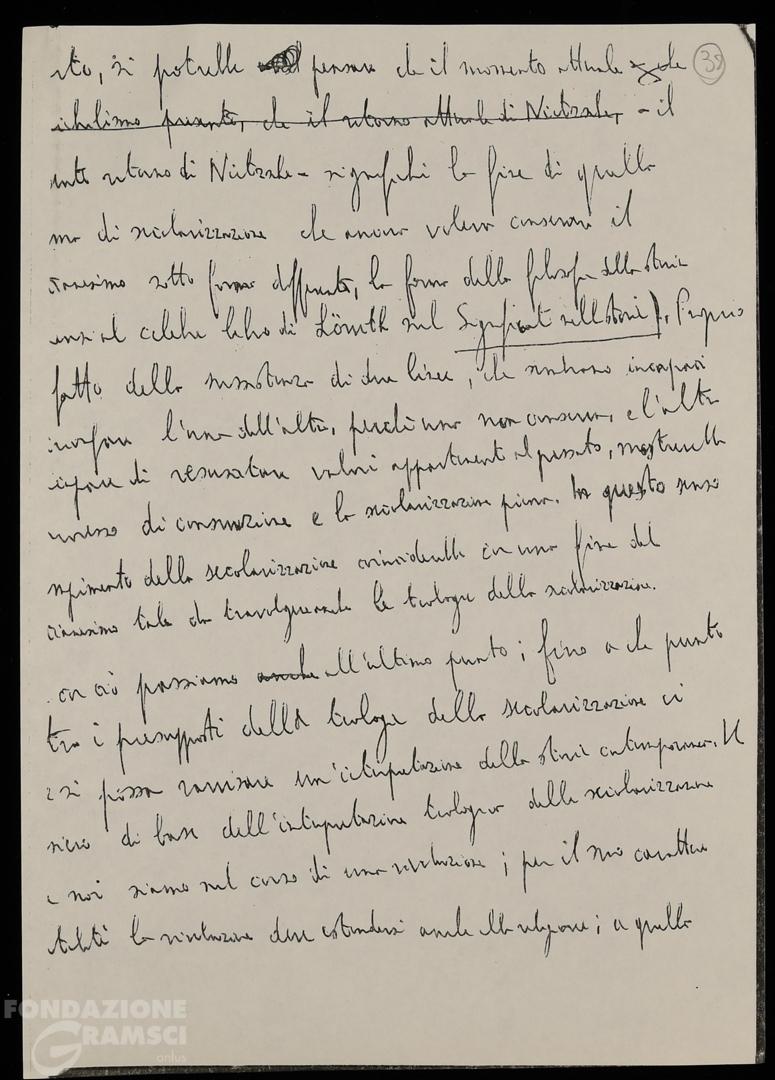 38
sto, si potrebbe pensare che il momento attuale che
ichilismo presente, che il ritorno attuale di Nietzsche, - il
ritorno di Nietzsche - significhi la fine di quella
ma di secolarizzazione che ancora voleva conservare il
tianesimo sotto forma differente, la forma della filosofia della storia
celebre libro di Löwith sul Significato nella storia). Proprio
fatto della sussistenza di due linee, che sembrano incapaci
l'una dell'altra, perché una non conserva, e l'altra
di resuscitare valori appartenenti al passato, mostrerebbe
di consunzione e la secolarizzazione piena. In questo senso
mpimento della secolarizzazione coinciderebbe con una fine del
tianesimo tale da travolgere anche le teologie della secolarizzazione.
con ciò passiamo anche all'ultimo punto; fino a che punto
tro i presupposti della teologia della secolarizzazione ci
e si possa ravvisare un'interpretazione della storia contemporanea. Il
siero di base dell'interpretazione teologica della secolarizzazione
e noi siamo nel corso di una rivoluzione; per il suo carattere
talità la rivoluzione deve estendersi anche alla religione; a quella
FONDAZIONE
GRAMSCI
onlus